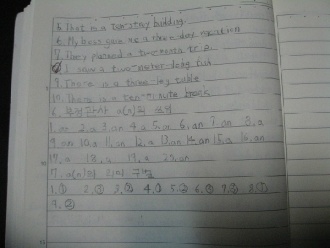 5. That is a ten-story building
6. My boss gave me a three-day vacation
7. They planned a two-month tr
8. I saw a two-meter-long fish
9. There is a three-leg table
10. There is a ten-minute break
6. 부정관사 a(n)의
1. an 2. a 3. an 4. a 5. an 6. an 7. an 8. a
9. an 10. a 11. an 12. a 13. an 14. an 15. a 16. an
17. a 18. a 19. a 20. an
7. a(n)의 의미 구분
1. ① 2. ③ 3. 4. 5. 6. 7. 8. ①
9. ②